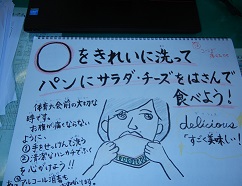 〇をきれいに洗って
パンにサラダ・チーズをはさんで
食べよう!
体育大会前の大切な
時です。
お腹が痛くならない
ように、
1) 手をせっけんで洗う
2) 清潔なハンカチでふく
を心がけよう!!
アルコール消毒も
delicious
すごく美味しい!